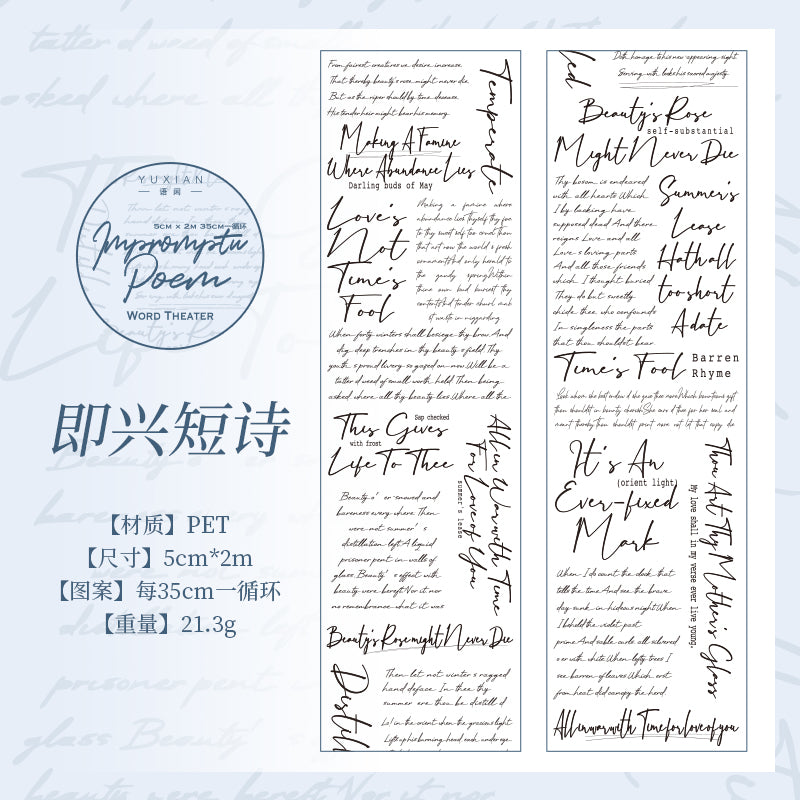 YUXIAN
语阅
5CM × 2M 35CM一循环
Impromptu
Poem
WORD THEATER
即兴短诗
【材质】PET
【尺寸】5cm*2m
【图案】每35cm一循环
【重量】21.3g
From fairest creatures we desire increase
That thereby beauty's rose might never die
But as the riper should by time decease
His tender heir might bear his memory
Temperate
Making A Famine
Where Abundance Lies
Darling buds of May
Love's
Not
Time's
Fool
Making a famine where
abundance lies Thyself thy foe
to thy sweet self too cruel Thou
that art now the world's fresh
ornament And only herald to
the gaudy spring Within
thine own bud buriest thy
content And tender churl mak
st waste in niggarding
When forty winters shall besiege thy brow And
dig deep trenches in thy beauty's field Thy
youth's proud livery so gazed on now Will be a
tatter d weed of small worth held Then being
asked where all thy beauty lies Where all the
This Gives
Sap checked
with frost
Life To Thee
All in War with Time
For Love of You
summer's lease
Beauty o' er snowed and
bareness every where Then
were not summer' s
distillation left A liquid
prisoner pent in walls of
glass Beauty' s effect with
beauty were bereft Nor it nor
no remembrance what it was
Beauty's Rose might Never Die
Distill
Then let not winter's ragged
hand deface In thee thy
summer ere thou be distill d
Lo! in the orient when the gracious light
Lifts up his burning head each under eye
led
Doth homage to his new appearing sight
Serving with looks his sacred majesty
Beauty's Rose
self-substantial
Might Never Die
Thy bosom is endeared
with all hearts Which
I by lacking have
supposed dead And there
reigns Love and all
Love's loving parts
And all those friends
which I thought buried
They do but sweetly
chide thee who confounds
In singleness the parts
that thou shouldst bear
Summer's
Lease
Hath all
too short
A date
Time's Fool
Barren
Rhyme
Look whom she best endow d she gave thee more Which bounteous gift
thou shouldst in bounty cherish She carv d thee for her seal and
meant thereby thou shouldst print more not let that copy die
It's An
(orient light)
Ever-fixed
Mark
Thou Art Thy Mother's Glass
My love shall in my verse ever live young.
When I do count the clock that
tells the time And see the brave
day sunk in hideous night When
I behold the violet past
prime And sable curls all silvered
o er with white When lofty trees I
see barren of leaves Which erst
from heat did canopy the herd
All in war with Time for love of you